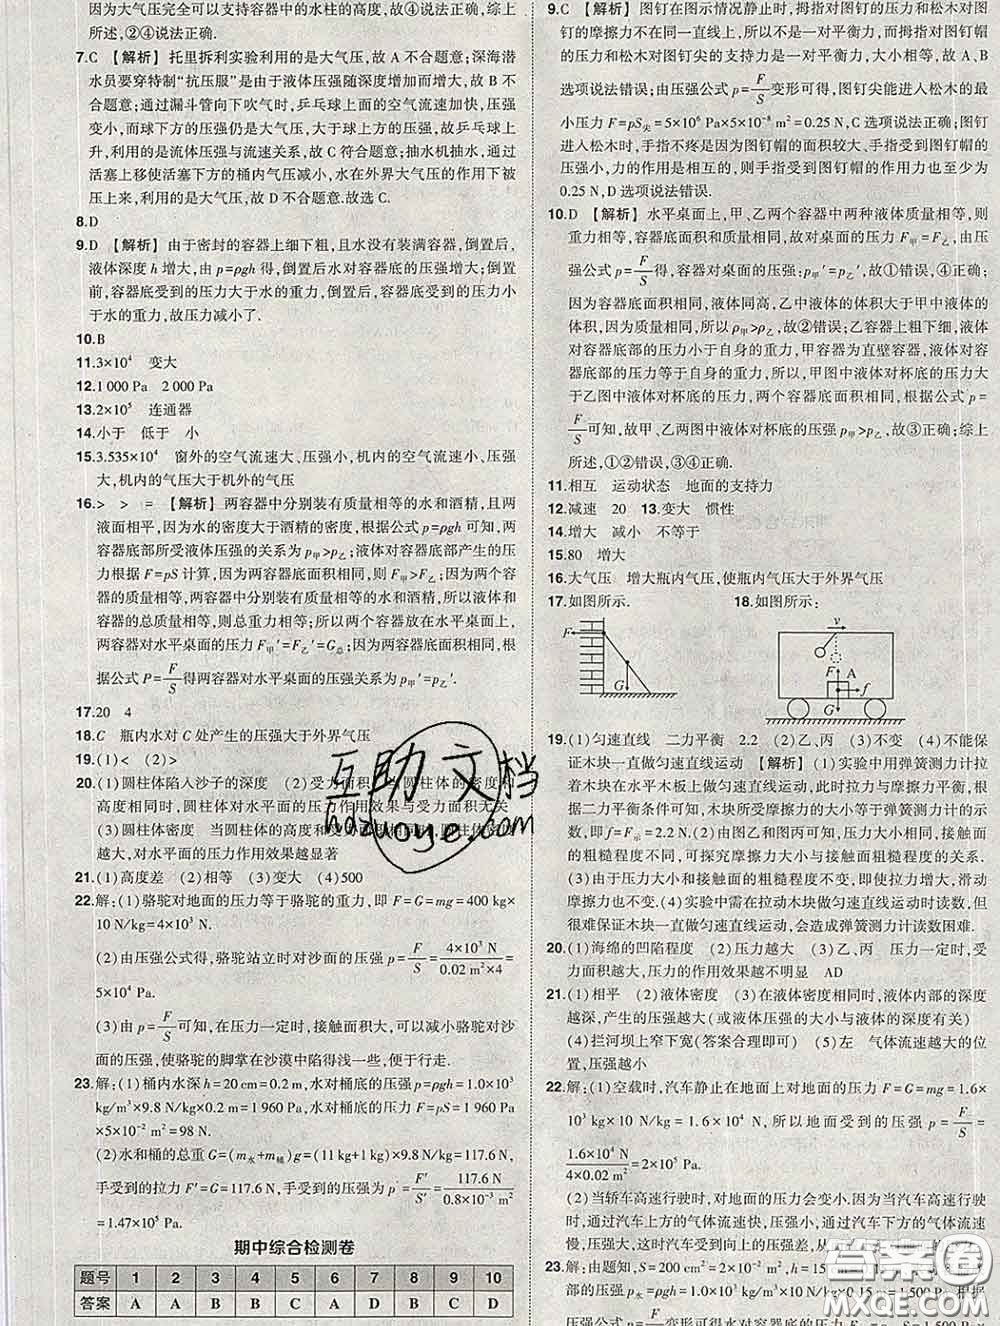 因为大气压完全可以支持容器中的水柱的高度,故②说法正确.综上
所述,②④说法正确.
7.C 【解析】托里拆利实验利用的是大气压,故 A 不合题意;深海潜
水员要穿特制“抗压服”是由于液体压强随深度增加而增大,故 B 不
合题意;通过漏斗管向下吹气时,乒乓球上面的空气流速加快,压强
变小,而球下方的压强仍是大气压,大于球上方的压强,故乒乓球上
升,利用的是流体压强与流速关系,故 C 符合题意;抽水机抽水,通过
活塞上移使活塞下方的桶内气压减小,水在外界大气压的作用下,被
压上来,利用的是大气压,故 D 不合题意.故选 C.
8.D
9.D 【解析】由于密封的容器上细下粗,且水没有装满容器,倒置后,
液体深度 h 增大,由 p=ρgh 得,倒置后水对容器底的压强增大;倒置
前,容器底受到的压力大于水的重力,倒置后,容器底受到的压力小
于水的重力,故压力减小了.
10.B
11.3×10⁴ 变大
12.1 000 Pa 2 000 Pa
13.2×10⁵ 连通器
14.小于 低于 小
15.3.535×10⁴ 窗外的空气流速大、压强小,机内的空气流速小、压强
大,机内的气压大于机外的气压
16.> > = 【解析】两容器中分别装有质量相等的水和酒精,且两
液面相平,因为水的密度大于酒精的密度,根据公式 p=ρgh 可知,两
容器底部所受液体压强的关系为 p甲>p乙;液体对容器底部产生的压
力根据 F=pS 计算,因为两容器底面积相同,则 F甲>F乙;因为两容
器质量相同,两容器中分别装有质量相等的水和酒精,所以两容器
的总质量相等,则总重力相等;将两个容器放在水平桌面上,
两容器对水平桌面的压力F甲′=F乙′=G总;因为两容器底面积相同,根
据公式 P=F/S得两容器对水平桌面的压强关系为 p甲′=p乙′.
17.20 4
18.C 瓶内水对 C 处产生的压强大于外界气压
19.(1)< (2)>
20.(1)圆柱体陷入沙子的深度 (2)受力面积 当圆柱体的密度和
高度相同时,圆柱体对水平面的压力作用效果与受力面积无关
(3)圆柱体密度 当圆柱体的高度和 相同时,圆柱体密度
越大,对水平面的压力作用效果越显著
21.(1)高度差 (2)相等 (3)变大 (4)500
22.解:(1)骆驼对地面的压力等于骆驼的重力,即 F=G=mg=400 kg×
10 N/kg=4×10³ N.
(2)由压强公式得,骆驼站立时对沙面的压强 p=F/S=4×10³ N/0.02 m²×4=
5×10⁴ Pa.
(3)由 p=F/S可知,在压力一定时,接触面积大,可以减小骆驼对沙
面的压强,使骆驼的脚掌在沙漠中陷得浅一些,便于行走.
23.解:(1)桶内水深 h=20 cm=0.2 m,水对桶底的压强p=ρgh=1.0×10³
kg/m³×9.8 N/kg×0.2 m=1 960 Pa,水对桶底的压力 F=pS=1 960 Pa
×5×10⁻² m²=98 N.
(2)水和桶的总重 G=(m水+m桶)g=(11 kg+1 kg)×9.8 N/kg=117.6 N,
手受到的拉力 F′=G=117.6 N,手受到的压强为p′=F′/S′=117.6 N/0.8×10⁻³ m²
=1.47×10⁵ Pa.
期中综合检测卷
题号 1 2 3 4 5 6 7 8 9 10
答案 A A B B C A D B C D
9.C 【解析】图钉在图示情况静止时,拇指对图钉的压力和松木对图
钉的摩擦力不在同一直线上,所以不是一对平衡力,而拇指对图钉帽
的压力和松木对图钉尖的支持力是一对平衡力,大小相等,故 A、B
选项说法错误;由压强公式 p=F/S变形可得,图钉尖能进入松木的最
小压力 F=pS尖=5×10⁶ Pa×5×10⁻⁸ m²=0.25 N,C 选项说法正确;图钉
进入松木时,手指不疼是因为图钉帽的面积较大、手指受到图钉帽的
压强小,力的作用是相互的,则手指受到图钉帽的作用力也至少为
0.25 N,D 选项说法错误.
10.D 【解析】水平桌面上,甲、乙两个容器中两种液体质量相等,则
容器底面积和质量相同,故对桌面的压力 F甲=F乙,由压
强公式 p=F/S可知,容器对桌面的压强:p甲′=p乙′,故①错误,④正确;
因为容器底面积相同,液体同高,乙中液体的体积大于甲中液体的
体积,因为质量相同,所以ρ甲>ρ乙,故②错误;乙容器上粗下细,所以
液体对容器底部的压力小于自身的重力,甲容器为直壁容器,液体
对容器底部的压力等于自身的重力,所以,甲图中液体对杯底的压力
大于乙图中液体对杯底的压力,两个容器底面积相同,根据公式 p=
F/S可知,故甲、乙两图中液体对杯底的压强p甲>p乙,故③正确;综上
所述,①②错误,③④正确.
11.相互 运动状态 地面的支持力
12.减速 20 13.变大 惯性
14.增大 减小 不等于
15.80 增大
16.大气压 增大瓶内气压,使瓶内气压大于外界气压
17.如图所示. 18.如图所示:
F G
v F A f G
19.(1)匀速直线 二力平衡 2.2 (2)乙、丙 (3)不变 (4)不能保
证木块一直做匀速直线运动 【解析】(1)实验中用弹簧测力计拉
着木块在水平木板上做匀速直线运动,此时拉力与摩擦力平衡,根
据二力平衡条件可知,木块所受摩擦力的大小等于弹簧测力计的示
数,即f=F=2.2 N.(2)由图乙和图丙可知,压力大小相同,接触面
的粗糙程度不同,可探究摩擦力大小与接触面的粗糙程度的关系.
(3)由于压力大小和接触面的粗糙程度不变,即使拉力增大,滑动
摩擦力也不变.(4)实验中需在拉动木块做匀速直线运动时读数,但
很难保证木块一直做匀速直线运动,会造成弹簧测力计读数困难.
20.(1)海绵的凹陷程度 (2)压力越大 (3)乙、丙 压力一定时,受
力面积越大,压力的作用效果越不明显 AD
21.(1)相平 (2)液体密度 (3)在液体密度相同时,液体内部的深度
越深,产生的压强越大(或液体压强的大小与液体的深度有关)
(4)拦河坝上窄下宽(答案合理即可) (5)左 气体流速越大的位
置,压强越小
22.解:(1)空载时,汽车静止在地面上对地面的压力 F=G=mg=1.6×
10³ kg×10 N/kg=1.6×10⁴ N,所以地面受到的压强 p=F/S=
1.6×10⁴ N/4×0.02 m²=2×10⁵ Pa.
(2)当轿车高速行驶时,对地面的压力会变小.因为当汽车高速行
驶时,汽车上方的气体流速快,压强小;通过汽车下方的气体流速
慢,压强大,使汽车受到向上的压强差,从
23.解:由题知,S=150 cm²=
p水=ρgh= 1 500 Pa,根据
压强公式
互助文档
hdzuoye.com
答案圈
MXQE.COM